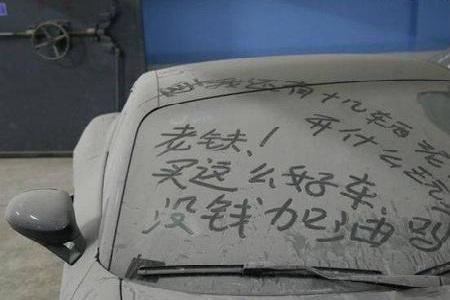 我还有十几辆
开什么玩
老铁！
买这么好车
没钱加油吗